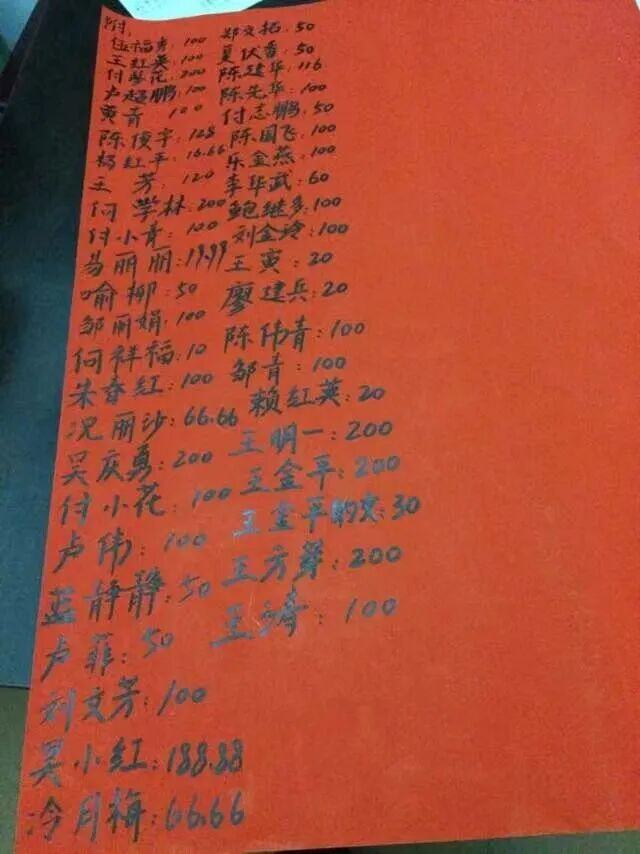 附:
伍福秀:100
王红英:100
付琴花:200
卢超鹏:100
黄青 120
陈俊宇:128
杨红平:16.66
王 芳:120
何学林:200
付小青:100
易丽丽:19.99
喻柳:50
邹丽娟:100
何祥福:10
朱春红:100
况丽沙:66.66
吴庆勇:200
付小花:100
卢伟:100
蓝静静:50
卢菲:50
刘文芳:100
吴小红:188.88
冷月梅:66.66
郑文拓:50
夏伏香:50
陈建华:116
陈先华:100
付志鹏:50
陈国飞:100
乐金燕:100
李华武:60
鲍继多:100
刘金玲:100
王寅:20
廖建兵:20
陈伟青:100
邹青:100
赖红英:20
王明一:200
王金平:200
王金平的女:30
王方芽:200
王涛:100